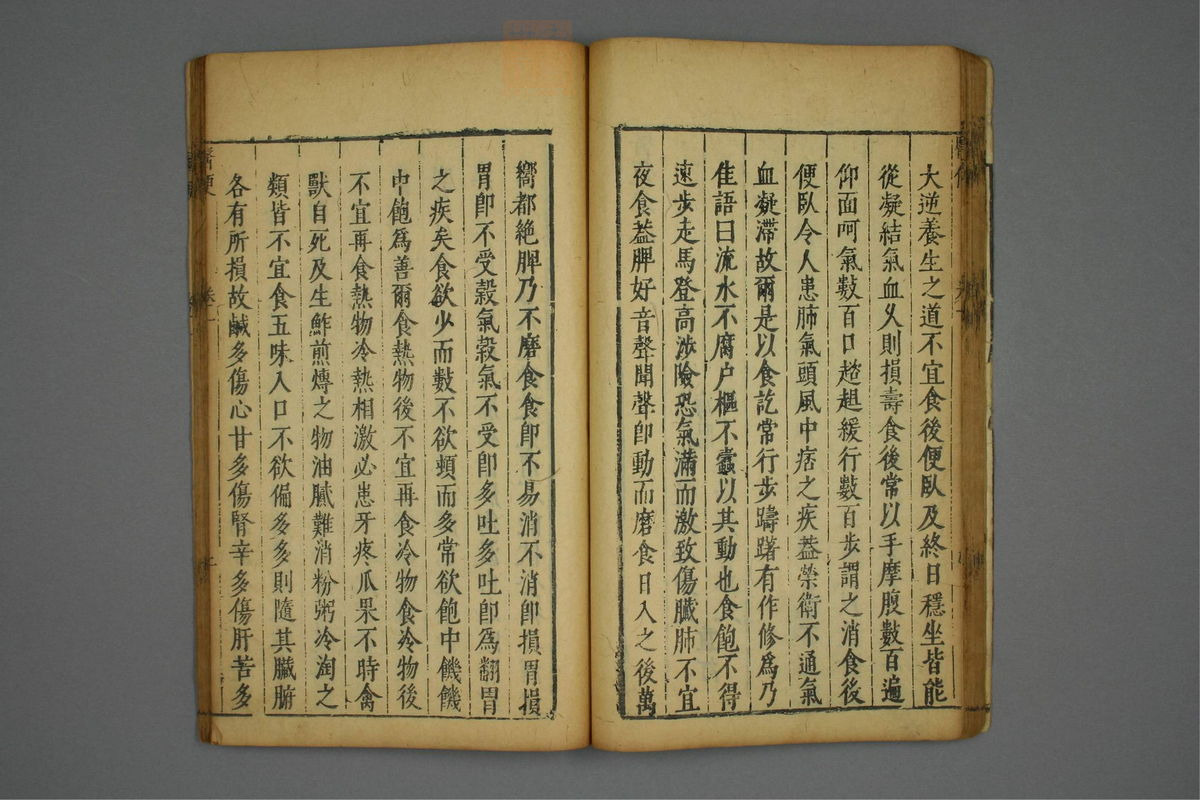 大逆養生之道不宜食後便臥及終日穩坐皆能
從凝結氣血乆則損壽食後常以手摩腹數百遍
仰面呵氣數百口趑趄緩行數百步謂之消食後
便臥令人患肺氣頭風中痞之疾葢榮衛不通氣
血凝滯故爾是以食訖常行步躊躇有作修爲乃
佳語曰流水不腐户樞不蠹以其動也食飽不得
速步走馬登高涉險恐氣滿而激致傷臟腑不宜
夜食葢脾好音聲聞聲卽動而磨食日入之後萬
嚮都絶脾乃不磨食食卽不易消不消卽損胃損
胃卽不受穀氣穀氣不受卽多吐多吐卽爲翻胃
之疾矣食欲少而數不欲頓而多常欲飽中饑饑
中飽爲善爾食熱物後不宜再食冷物食冷物後
不宜再食熱物冷熱相激必患牙疼瓜果不時禽
獸自死及生鮓煎煿之物油膩難消粉粥冷淘之
類皆不宜食五味入口不欲偏多多則隨其臟腑
各有所損故鹹多傷心甘多傷腎辛多傷肝苦多
卷一